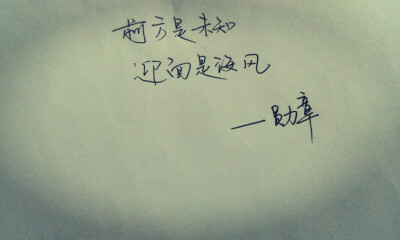 前方是未知
迎面是海风
——勋章